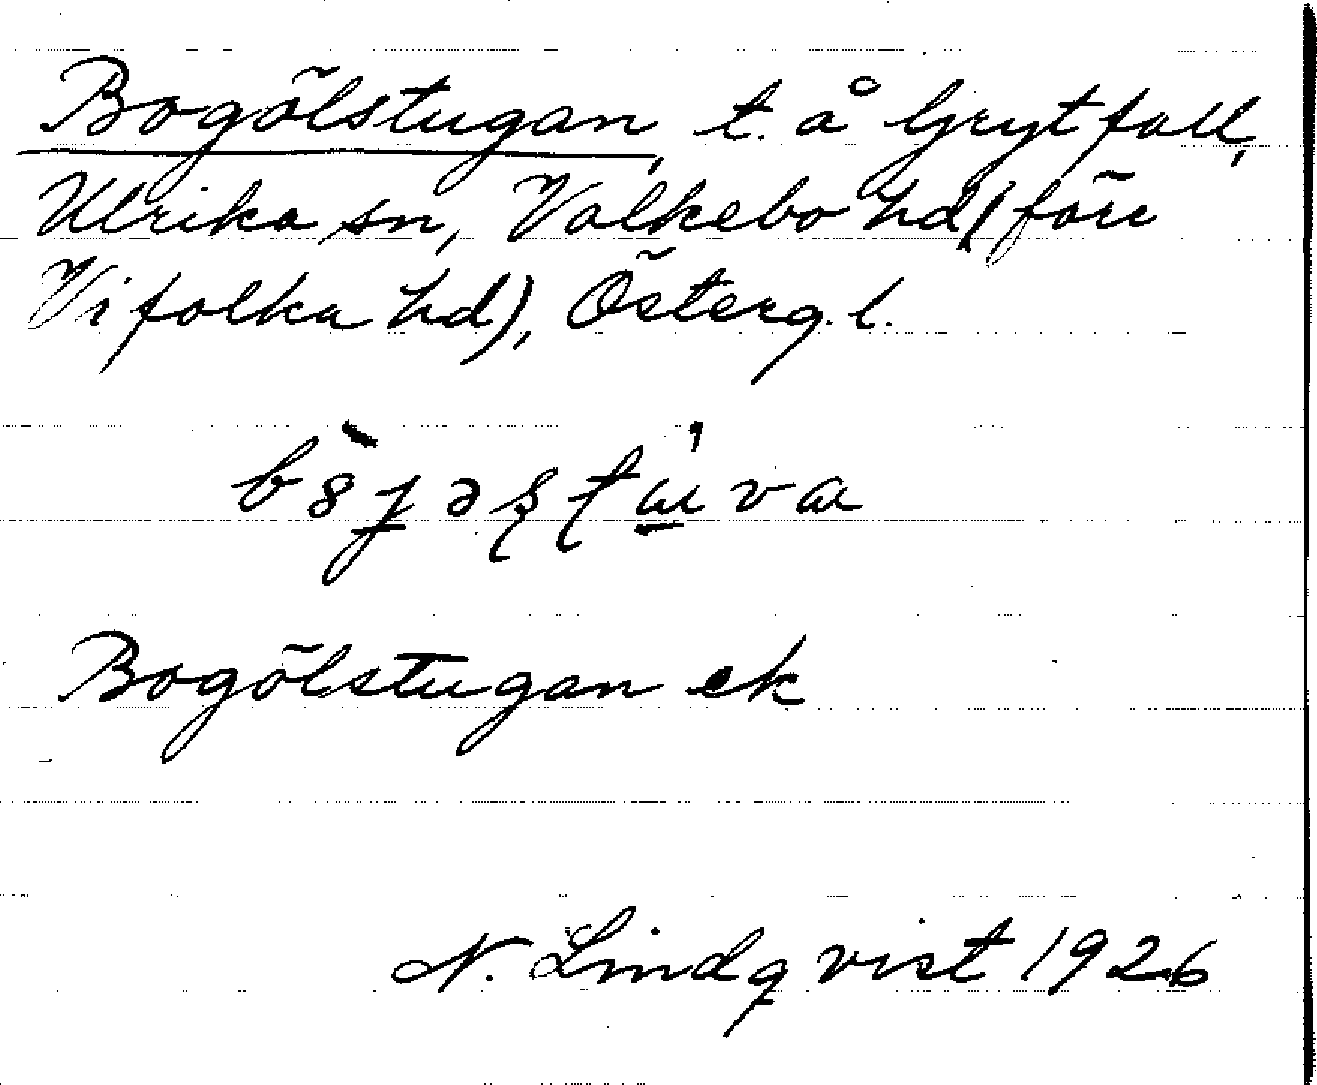 Bogölstugan, t. å Grytfall,
Ulrika sn, Valkebo hd (förr
Vifolka hd), Österg. l.
Bogölstugan ek
N. Lindqvist 1926